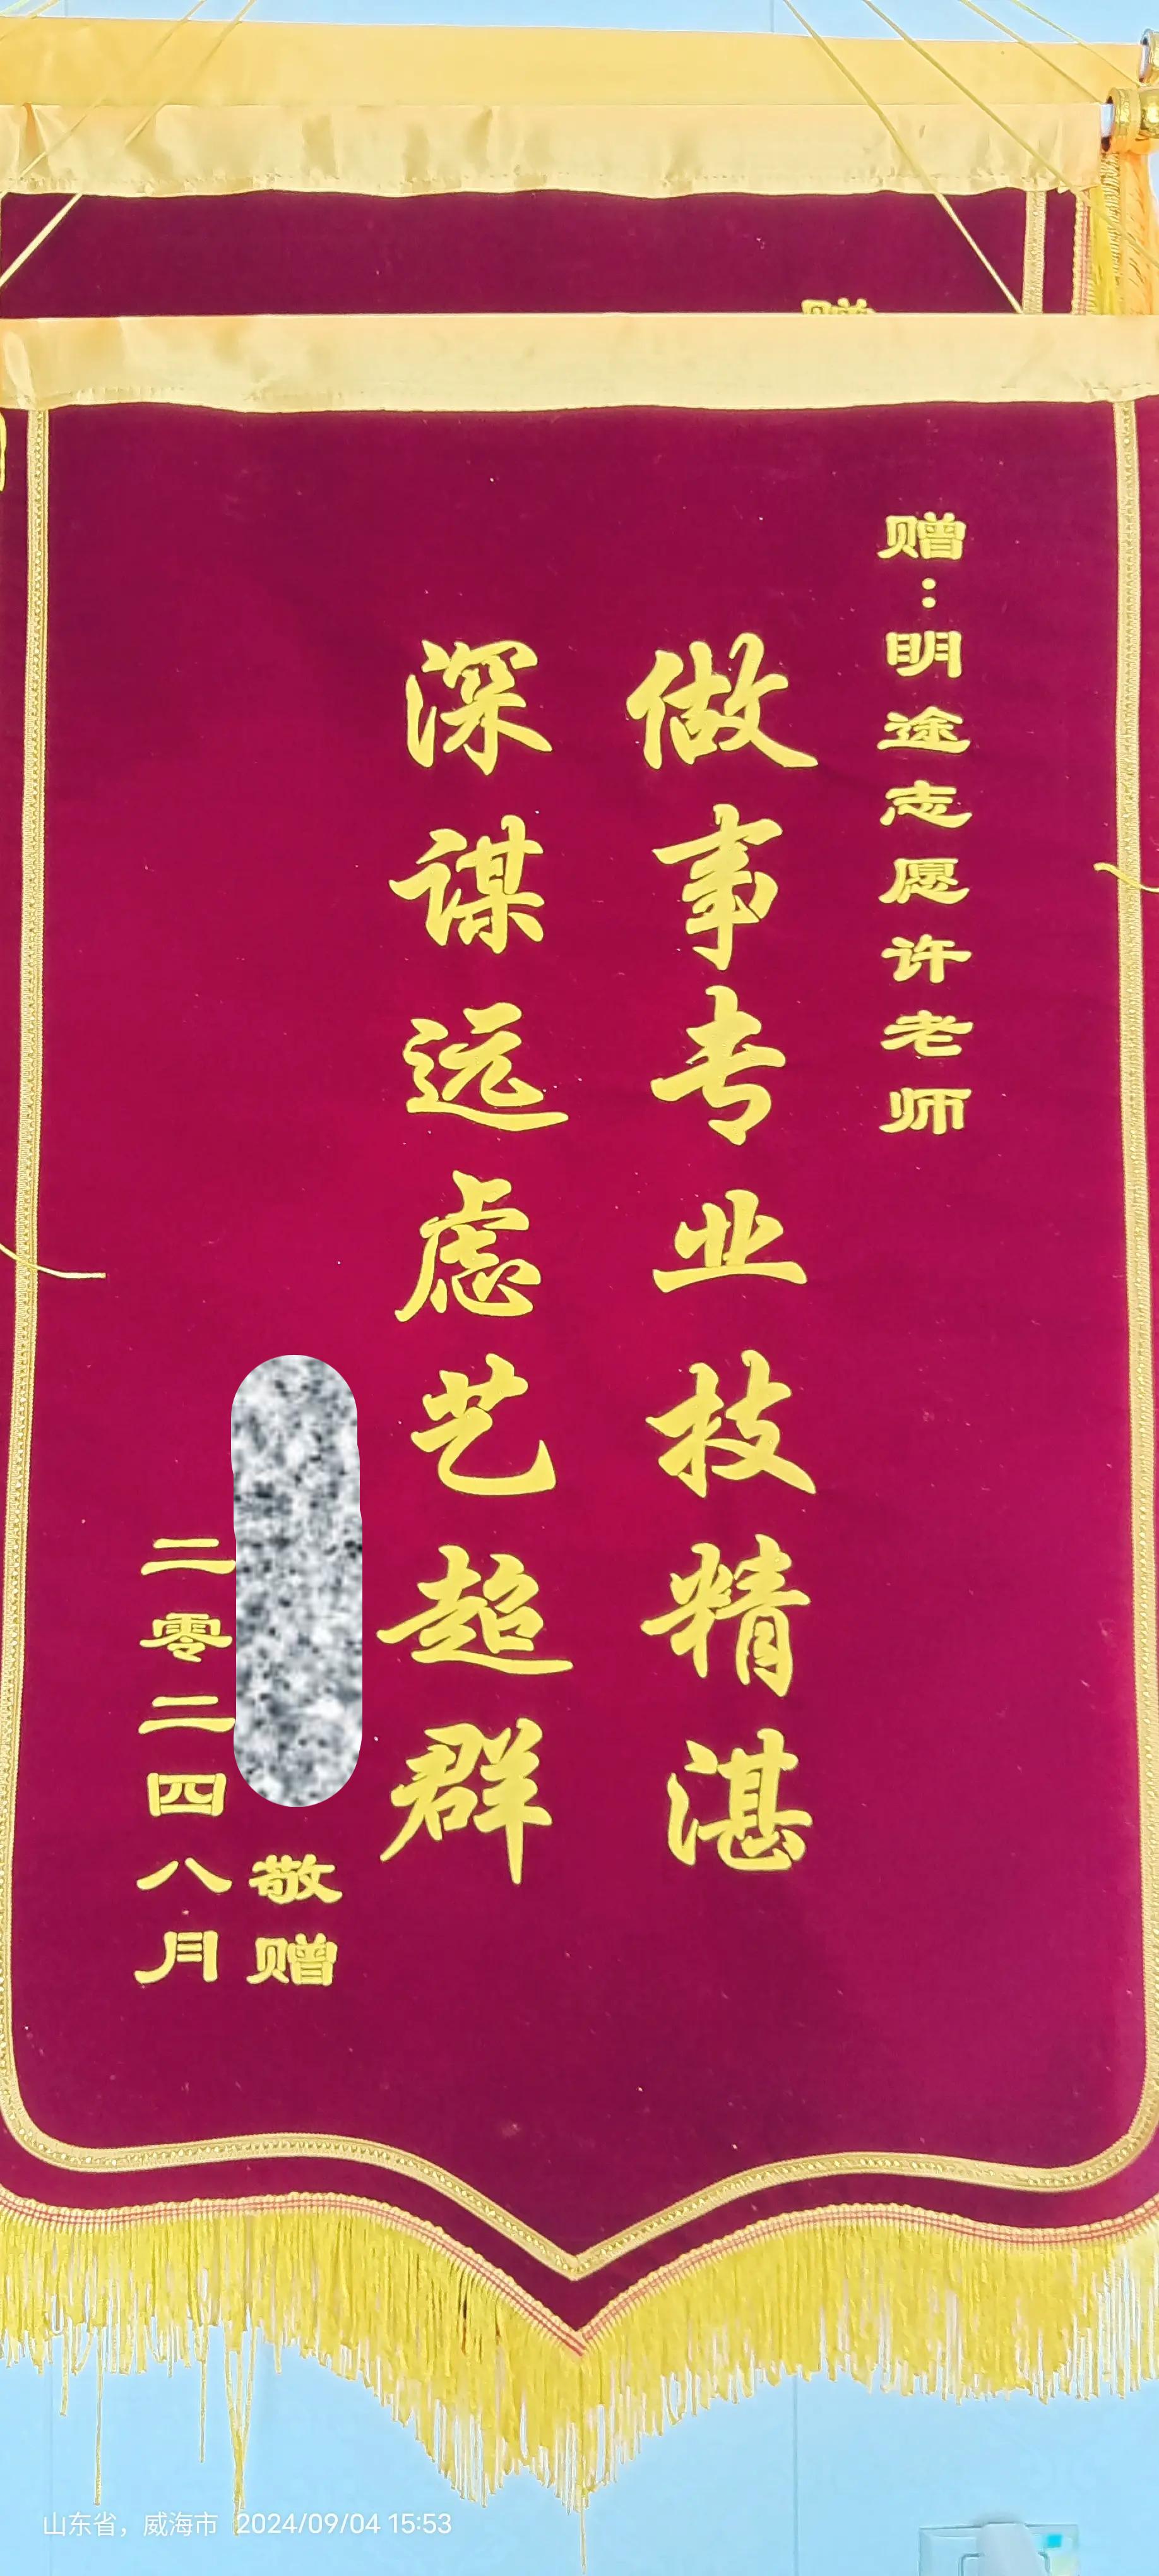 赠
赠：明途志愿许老师
做事专业技精湛
深谋远虑艺超群
敬赠
二零二四八月
山东省，威海市 2024/09/04 15:53